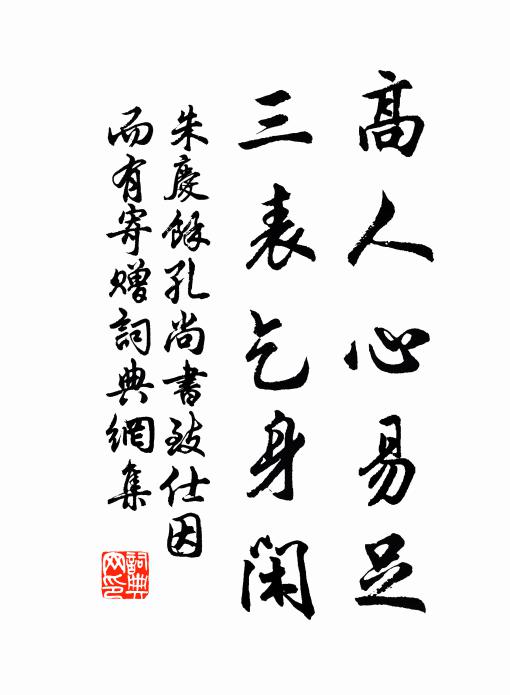 高人心易足
三表乞身閑
朱慶餘孔尚書致仕因
而有寄贈詞典網集
詞典網印